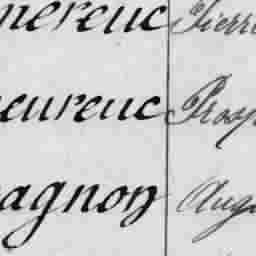 mereuc Pierre
eureuc Prosp
agnon Augu